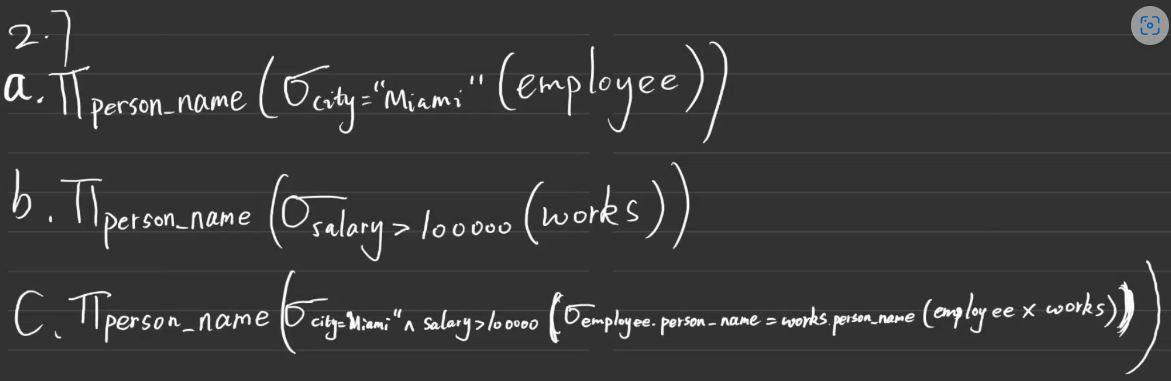 2.7
a. Π person_name (σ city="Miami" (employee))
b. Π person_name (σ salary > 100000 (works))
C. Π person_name (σ city="Miami" ∧ salary>100000 (σ employee.person_name = works.person_name (employee × works)))